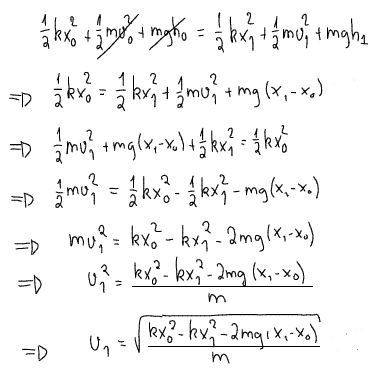 ½kx₀² + ½mv₀² + mgh₀ = ½kx₁² + ½mv₁² + mgh₁
⇒ ½kx₀² = ½kx₁² + ½mv₁² + mg(x₁-x₀)
⇒ ½mv₁² + mg(x₁-x₀) + ½kx₁² = ½kx₀²
⇒ ½mv₁² = ½kx₀² - ½kx₁² - mg(x₁-x₀)
⇒ mv₁² = kx₀² - kx₁² - 2mg(x₁-x₀)
⇒ v₁² = (kx₀² - kx₁² - 2mg(x₁-x₀))/m
⇒ v₁ = √((kx₀² - kx₁² - 2mg(x₁-x₀))/m)